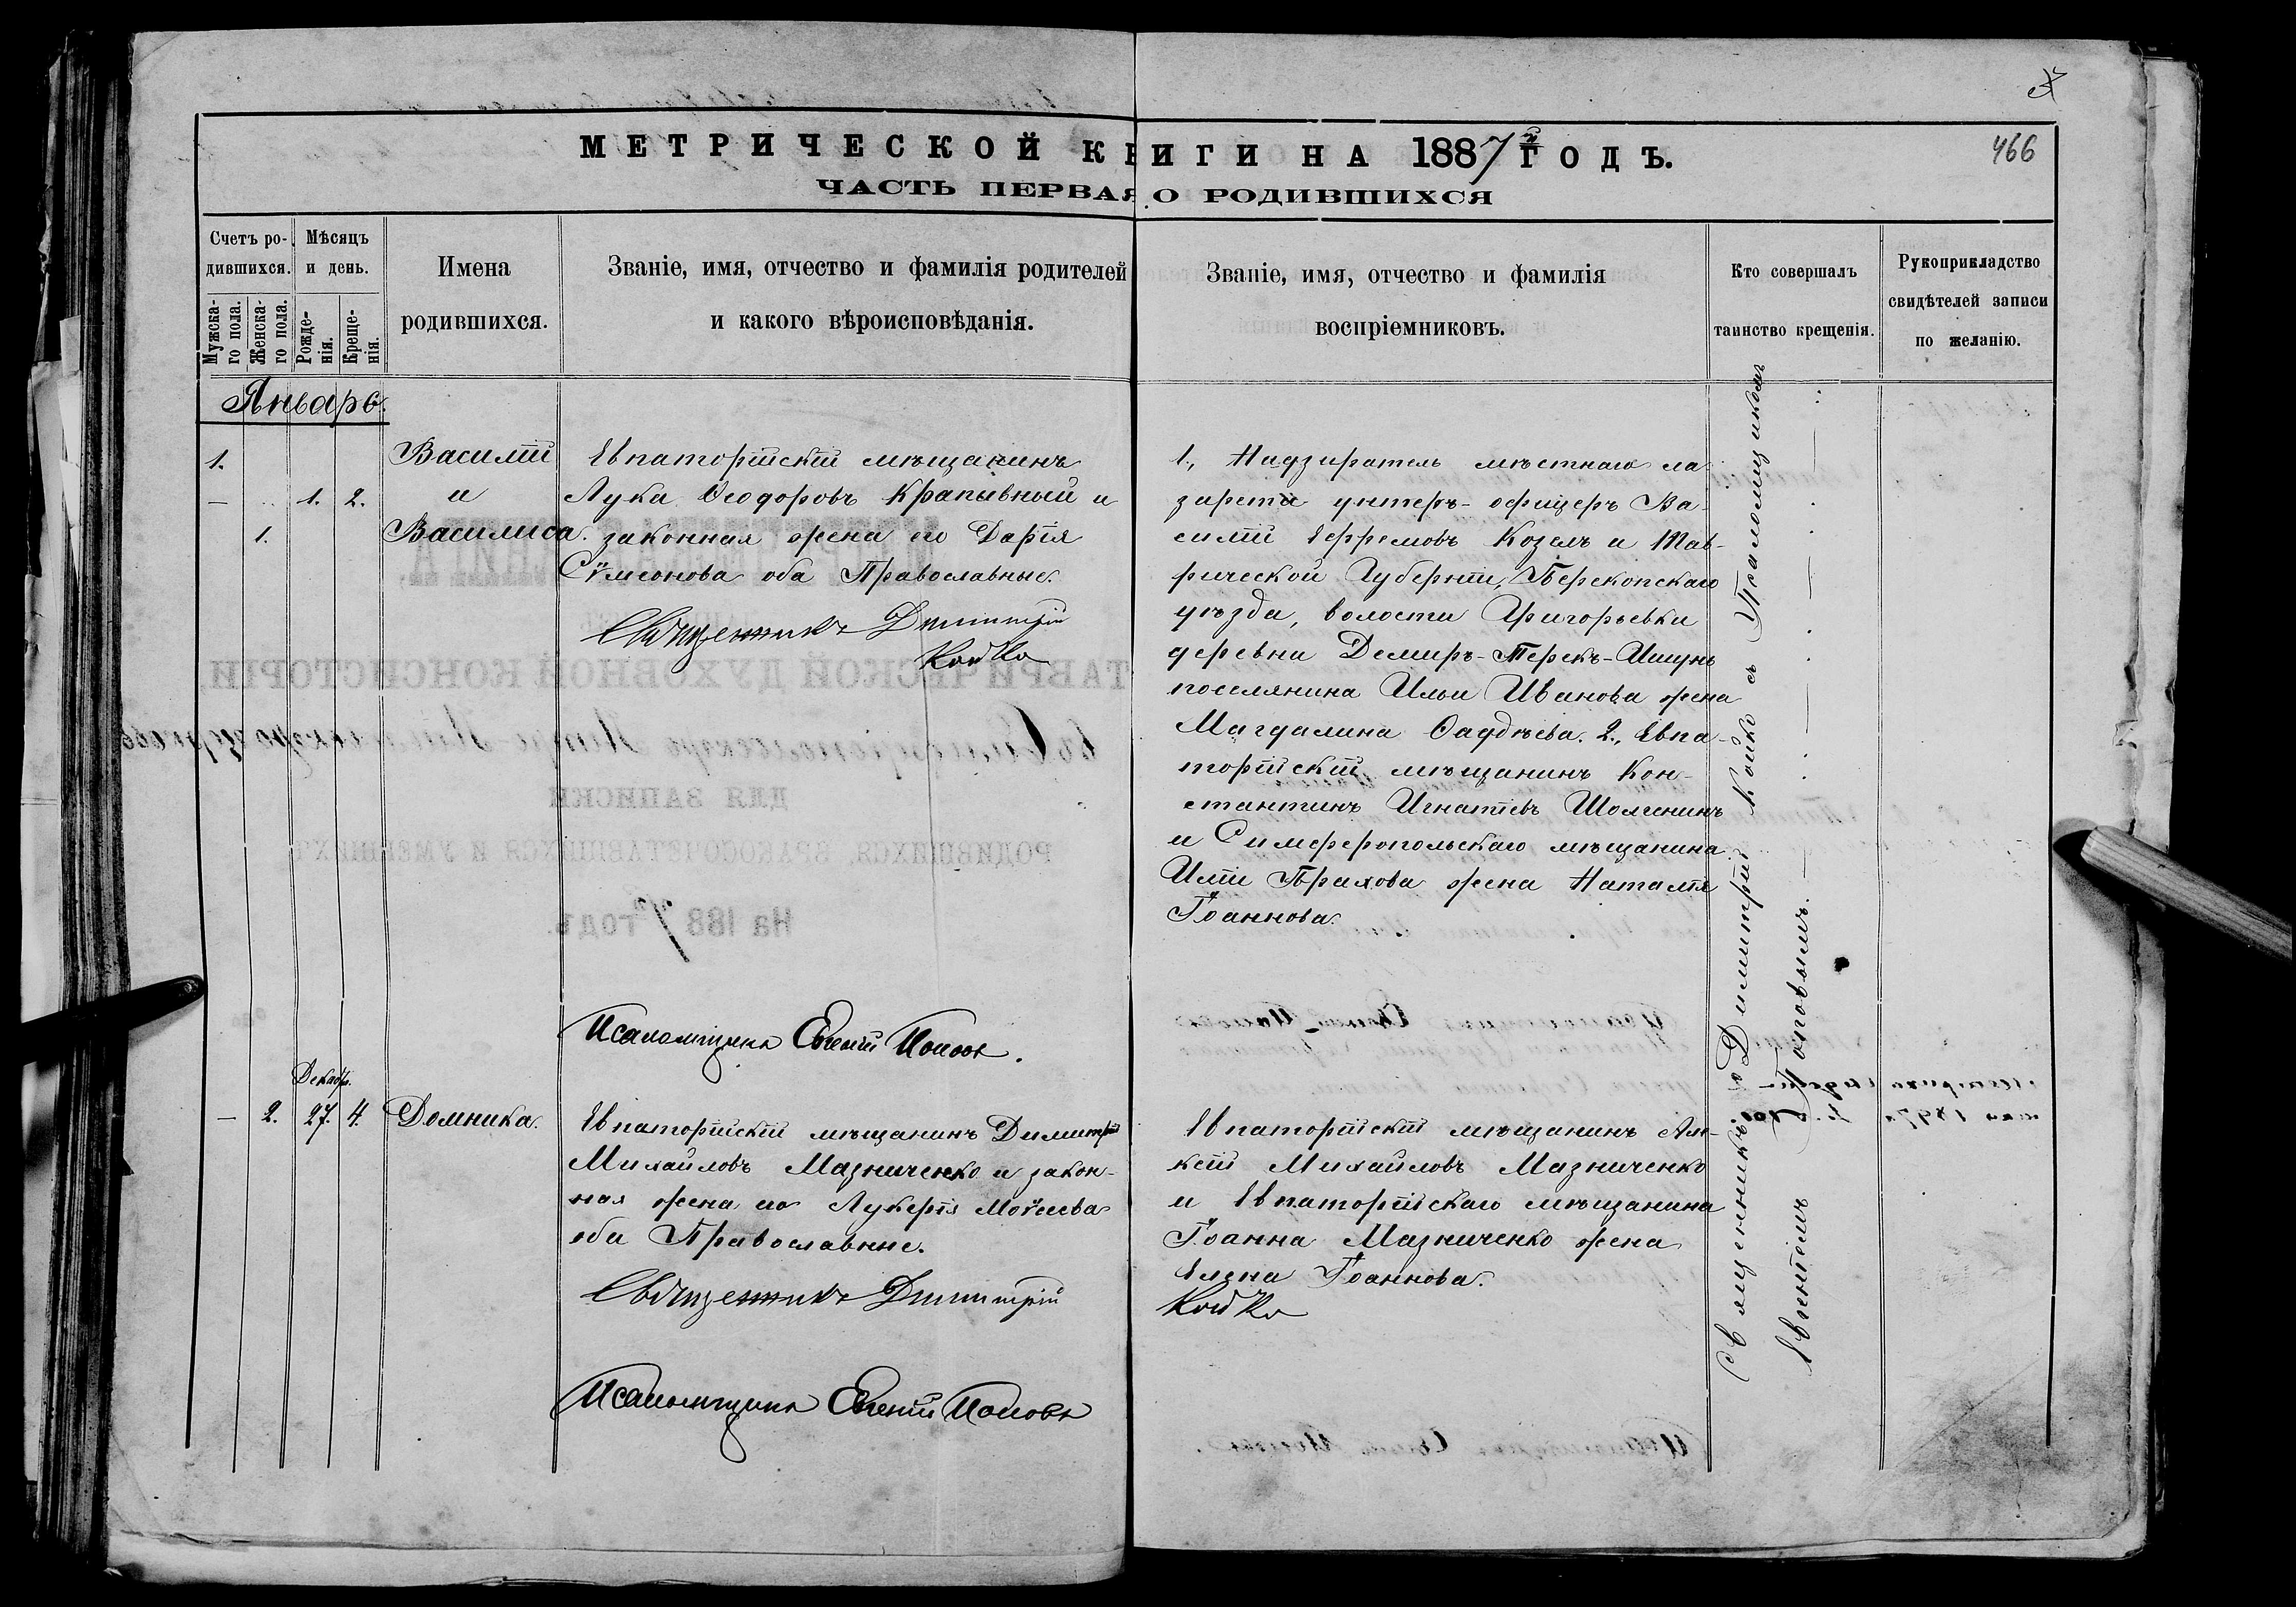 3
466
МЕТРИЧЕСКОЙ КНИГИ НА 1887й ГОДЪ.
ЧАСТЬ ПЕРВАЯ О РОДИВШИХСЯ
Счетъ родившихся.
Мужскаго пола.
Женскаго пола.
Мѣсяцъ и день.
Рожденія.
Крещенія.
Имена
родившихся.
Званіе, имя, отчество и фамилія родителей
и какого вѣроисповѣданія.
Званіе, имя, отчество и фамилія
воспріемниковъ.
Кто совершалъ
таинство крещенія.
Рукоприкладство
свидѣтелей записи
по желанію.
Январь.
1.
1.
1. 2.
Василій
и
Василиса.
Евпаторійскій мѣщанинъ
Лука Ѳеодоровъ Крапывный и
законная жена его Дарія
Сѵмеонова оба Православные.
Священникъ Димитрій
Койко
1., Надзиратель мѣстнаго ла-
зарета унтеръ-офицеръ Ва-
силій Ефремовъ Козелъ и Тав-
рической Губерніи, Перекопскаго
уѣзда, волости Григорьевки
деревни Демиръ-Терекъ-Ишунь
поселянина Ильи Иванова жена
Магдалина Ѳаддѣева. 2., Евпа-
торійскій мѣщанинъ Кон-
стантинъ Игнатіевъ
и Симферопольскаго мѣщанина
Иліи жена Наталія
Іоаннова.
Псаломщикъ Евгеній Поповъ.
Декабр.
2. 27. 4.
Домника.
Евпаторійскій мѣщанинъ Димитрій
Михайловъ Мазниченко и закон-
ная жена его Лукерія Моѵсеева
оба Православные.
Священникъ Димитрій
Койко
Евпаторійскій мѣщанинъ Але-
ксій Михайловъ Мазниченко
и Евпаторійскаго мѣщанина
Іоанна Мазниченко жена
Елена Іоаннова.
Псаломщикъ Евгеній Поповъ
Священникъ Димитрій Койко съ Псаломщикомъ
Евгеніемъ Поповымъ.